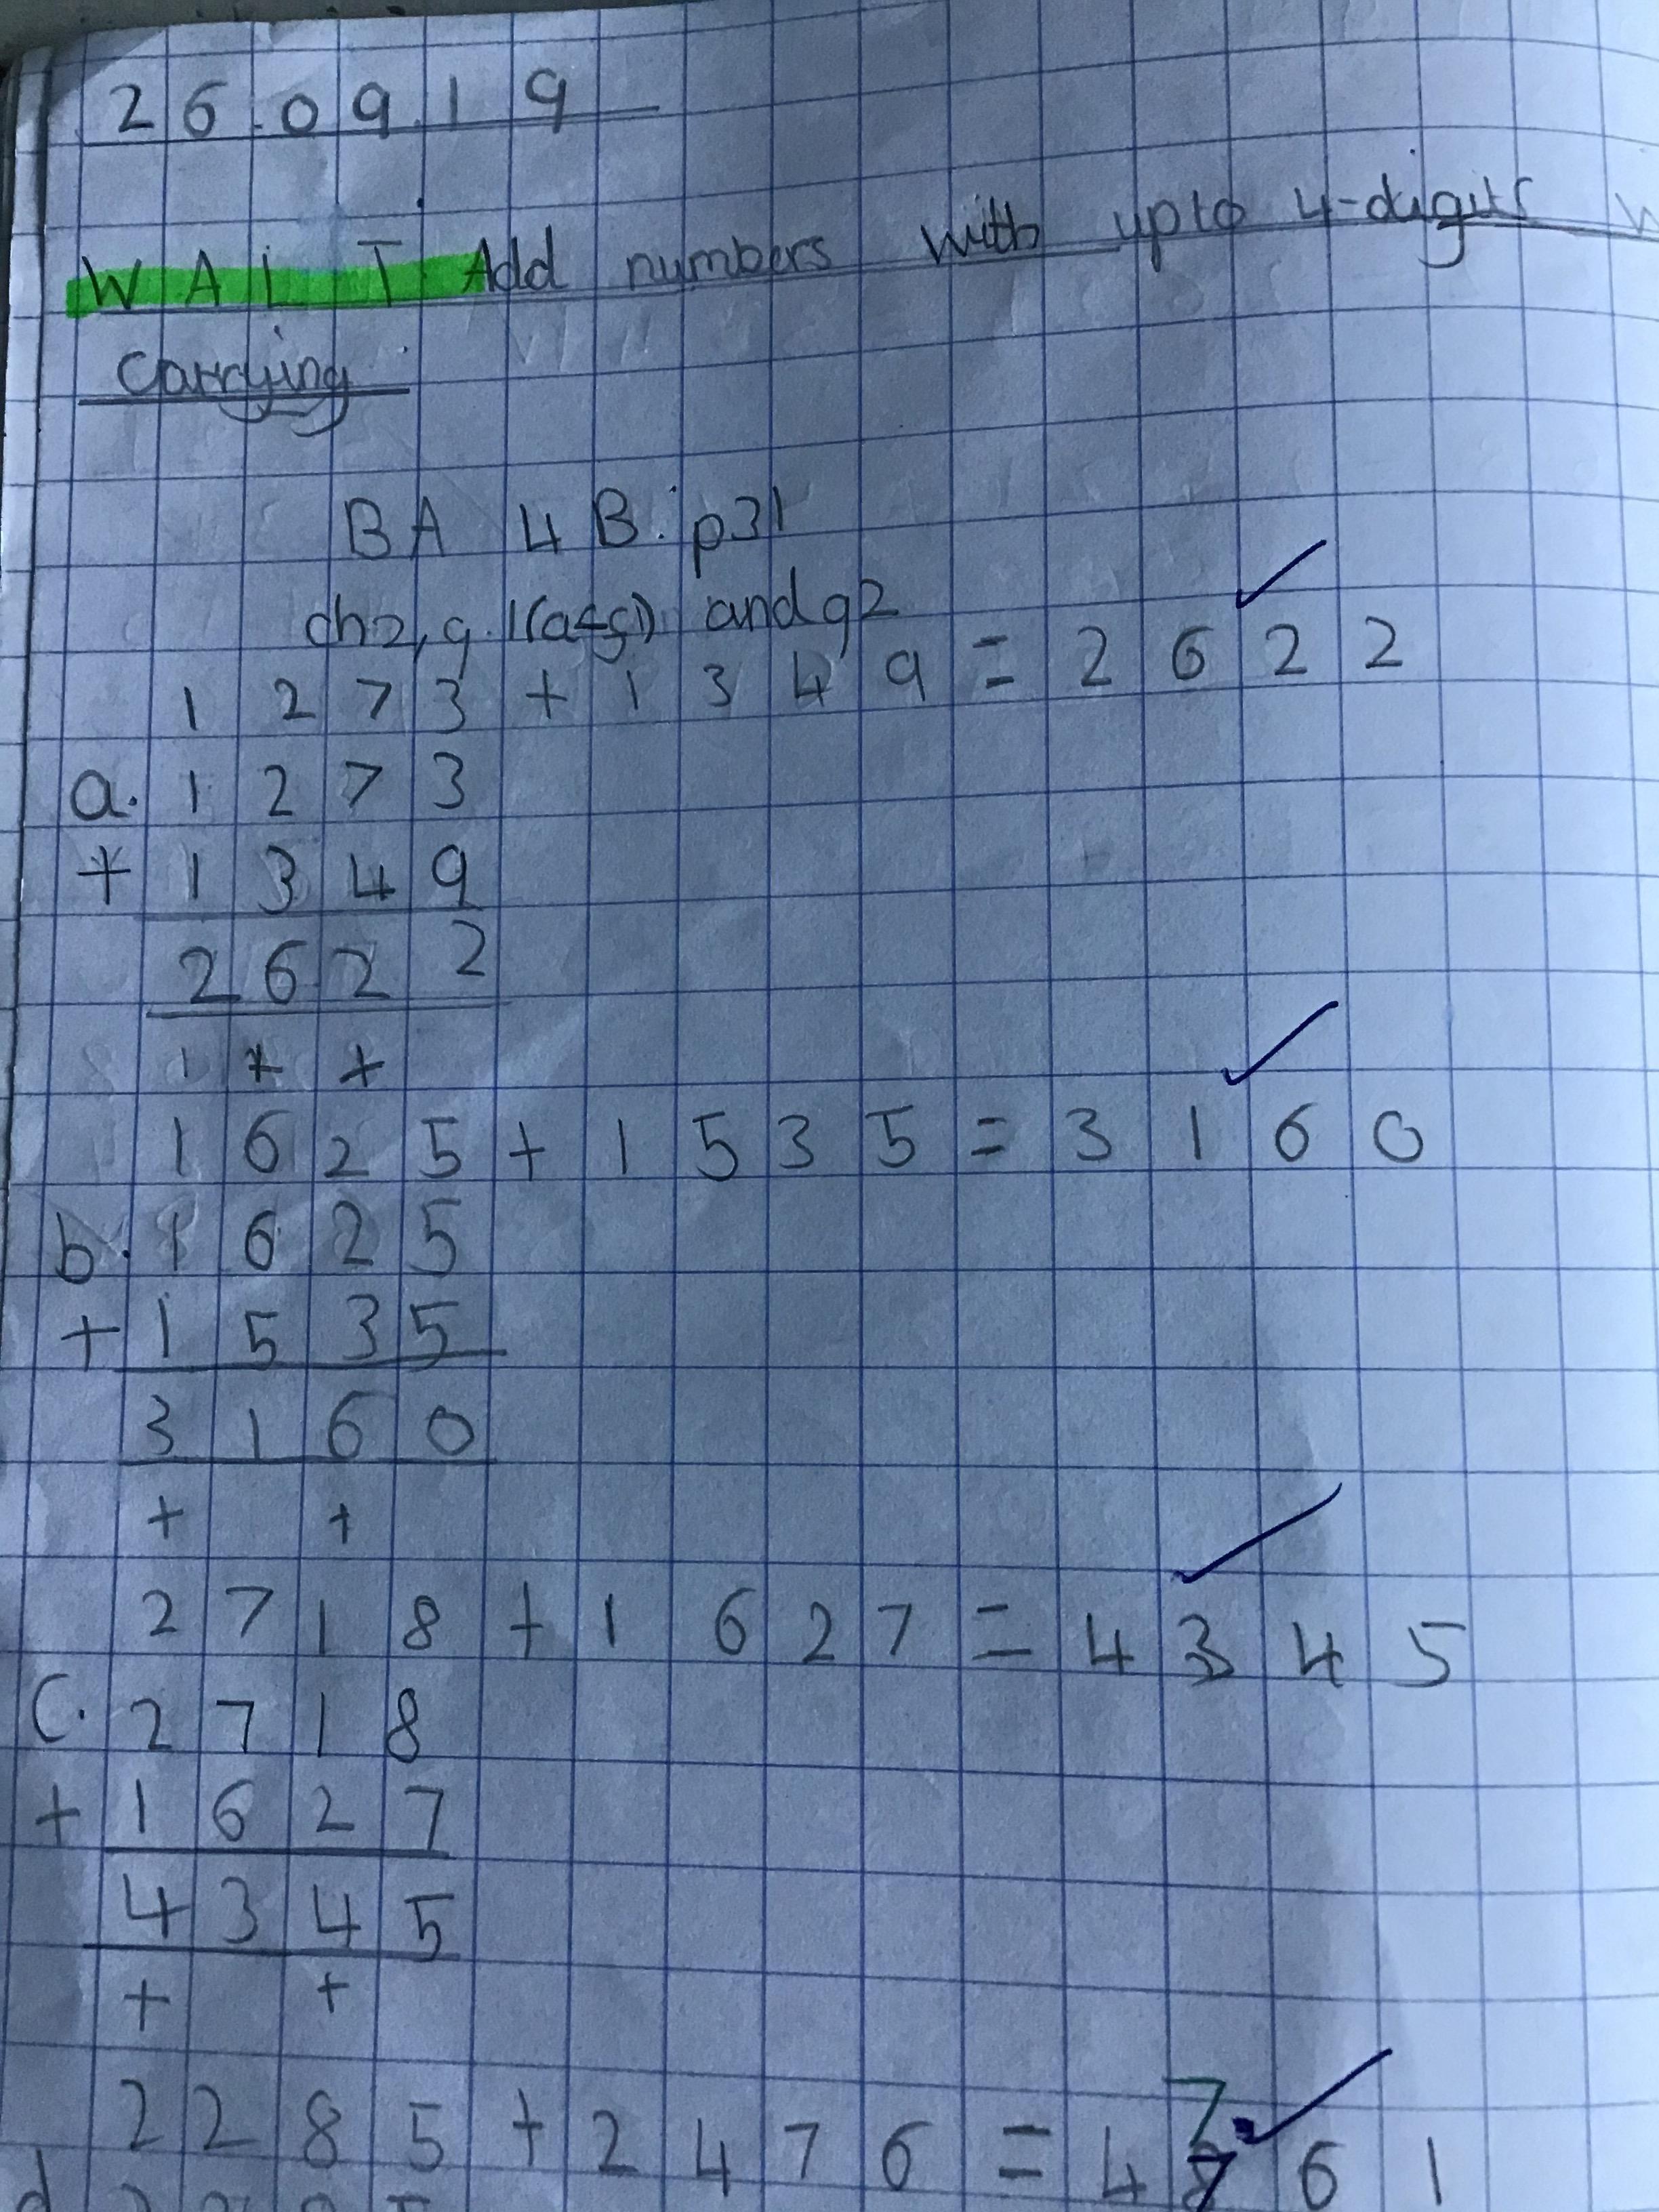 26.09.19
WALT Add numbers with upto 4-digits
carrying
BA 4B: p31
ch2, q.1(a-g) and q2
1273 + 1349 = 2622
a. 1273
+ 1349
2622
1 + +
1625 + 1535 = 3160
b. 1625
+ 1535
3160
+ +
2718 + 1627 = 4345
c. 2718
+ 1627
4345
+ +
7
2285 + 2476 = 4761
d